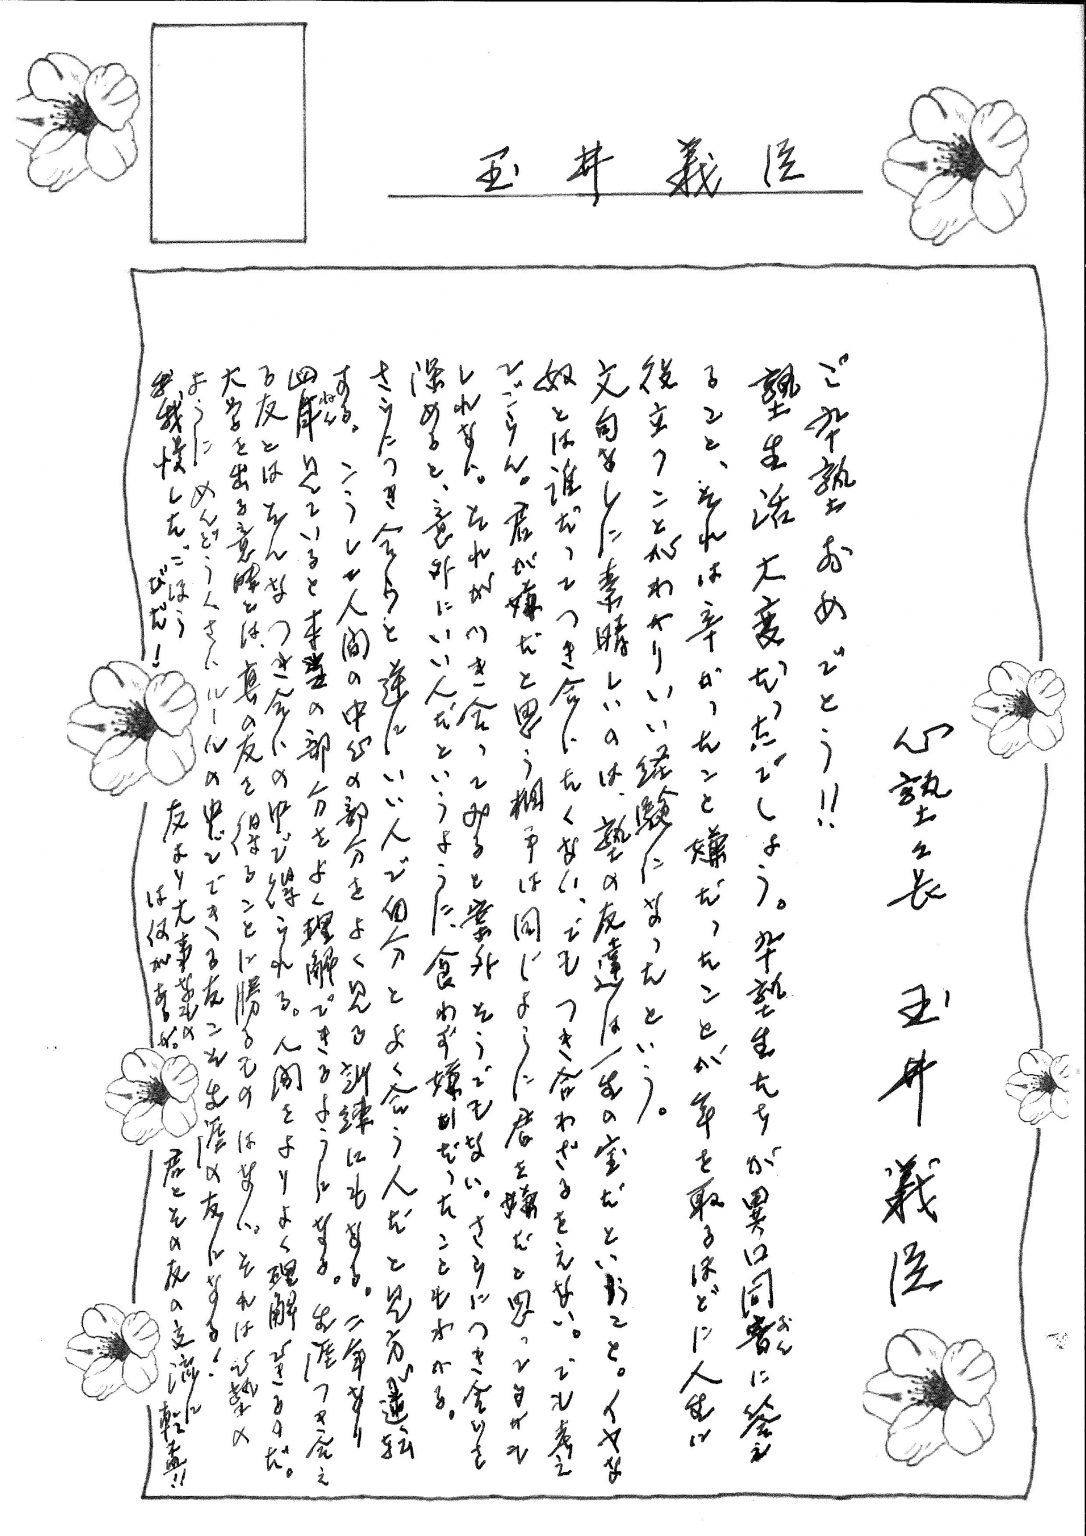 玉井義臣
心塾々長　玉井義臣
ご卒塾おめでとう!!
塾生活大変だったでしょう。卒塾生たちが異口同音に答え
おん
ること、それは辛かったこと嫌だったことが年を取るほどに人生に
役立つことがわかりいい経験になったという。
文句なしに素晴しいのは、塾の友達は一生の宝だということ。イヤな
奴とは誰だってつき合いたくない、でもつき合わざるをえない。でも考え
てごらん。君が嫌だと思う相手は同じように君を嫌だと思ってるかも
しれない。それがつき合ってみると案外そうでもない。さらにつき合いを
深めると、意外にいい人だというように、食わず嫌いだったことわかる。
さらにつき合うと逆にいい人で自分とよく合う人だと見方が逆転
する。こうして人間の中心の部分をよく見る訓練にもなる。二年なり
四年見ていると本当の部分をよく理解できるようになる。生涯つき合え
ねん
る友とはそんなつき合いの中で得られる。人間をよりよく理解できるのだ。
大学を出る意味とは、真の友を得ることに勝るものはない。それは心塾の
ようにめんどうくさいルールの中でできる友こそ生涯の友になる！
我慢したごほうびだ！　友より大事なもの
は何があるか。　君とその友の交流に
乾盃!!